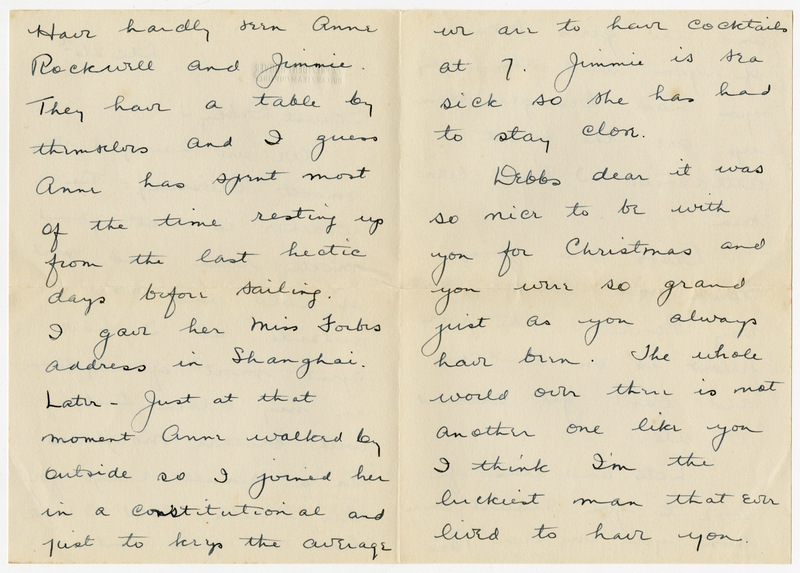 Have hardly seen Anne
Rockwell and Jimmie.
They have a table by
themselves and I guess
Anne has spent most
of the time resting up
from the last hectic
days before sailing.
I gave her Miss Forbes
address in Shanghai.
Later - Just at that
moment Anne walked by
outside so I joined her
in a constitutional and
just to keep the average
we are to have cocktails
at 7. Jimmie is sea
sick so she has had
to stay close.
Debbs dear it was
so nice to be with
you for Christmas and
you were so grand
just as you always
have been. The whole
world over there is not
another one like you
I think I'm the
luckiest man that ever
lived to have you.